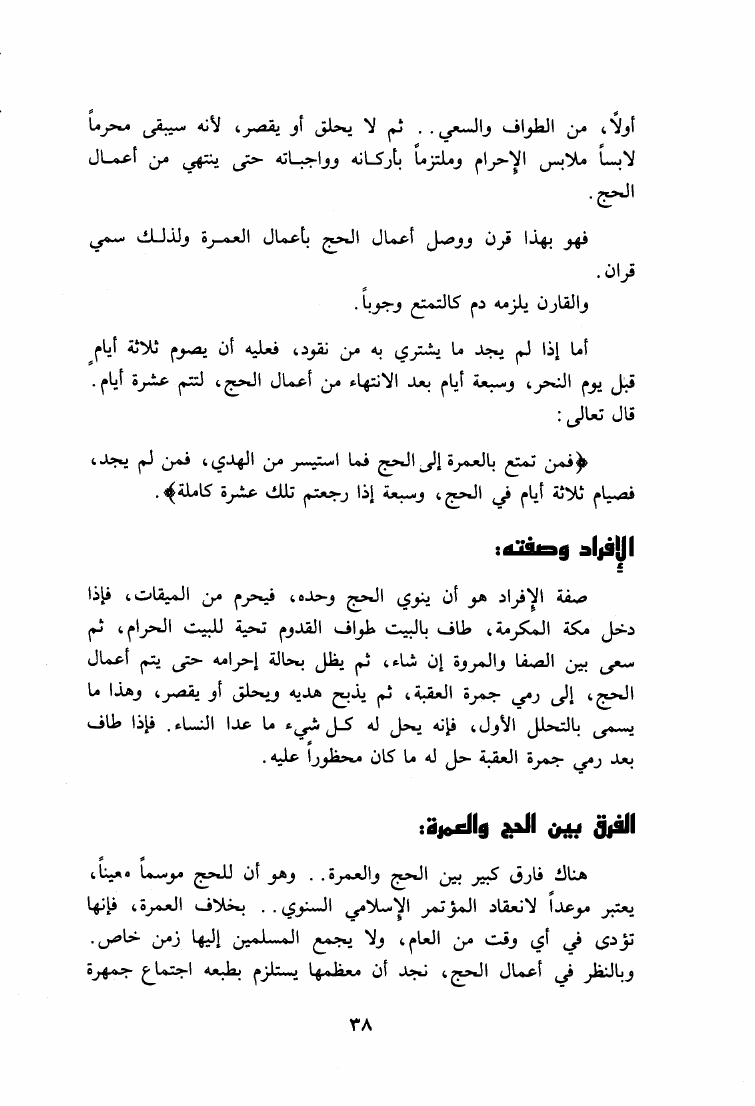 أولاً، من الطواف والسعي.. ثم لا يحلق أو يقصر، لأنه سيبقى محرماً
لابساً ملابس الإحرام وملتزماً بأركانه وواجباته حتى ينتهي من أعمال
الحج.
فهو بهذا قرن ووصل أعمال الحج بأعمال العمرة ولذلك سمي
قران.
والقارن يلزمه دم كالتمتع وجوباً.
أما إذا لم يجد ما يشتري به من نقود، فعليه أن يصوم ثلاثة أيامٍ
قبل يوم النحر، وسبعة أيام بعد الانتهاء من أعمال الحج، لتتم عشرة أيام.
قال تعالى:
﴿فمن تمتع بالعمرة إلى الحج فما استيسر من الهدي، فمن لم يجد،
فصيام ثلاثة أيام في الحج، وسبعة إذا رجعتم تلك عشرة كاملة﴾.
الإفراد وصفته:
صفة الإفراد هو أن ينوي الحج وحده، فيحرم من الميقات، فإذا
دخل مكة المكرمة، طاف بالبيت طواف القدوم تحية للبيت الحرام، ثم
سعى بين الصفا والمروة إن شاء، ثم يظل بحالة إحرامه حتى يتم أعمال
الحج، إلى رمي جمرة العقبة، ثم يذبح هديه ويحلق أو يقصر، وهذا ما
يسمى بالتحلل الأول، فإنه يحل له كل شيء ما عدا النساء. فإذا طاف
بعد رمي جمرة العقبة حل له ما كان محظوراً عليه.
الفرق بين الحج والعمرة:
هناك فارق كبير بين الحج والعمرة.. وهو أن للحج موسماً معيناً،
يعتبر موعداً لانعقاد المؤتمر الإسلامي السنوي.. بخلاف العمرة، فإنها
تؤدى في أي وقت من العام، ولا يجمع المسلمين إليها زمن خاص.
وبالنظر في أعمال الحج، نجد أن معظمها يستلزم بطبعه اجتماع جمهرة
٣٨